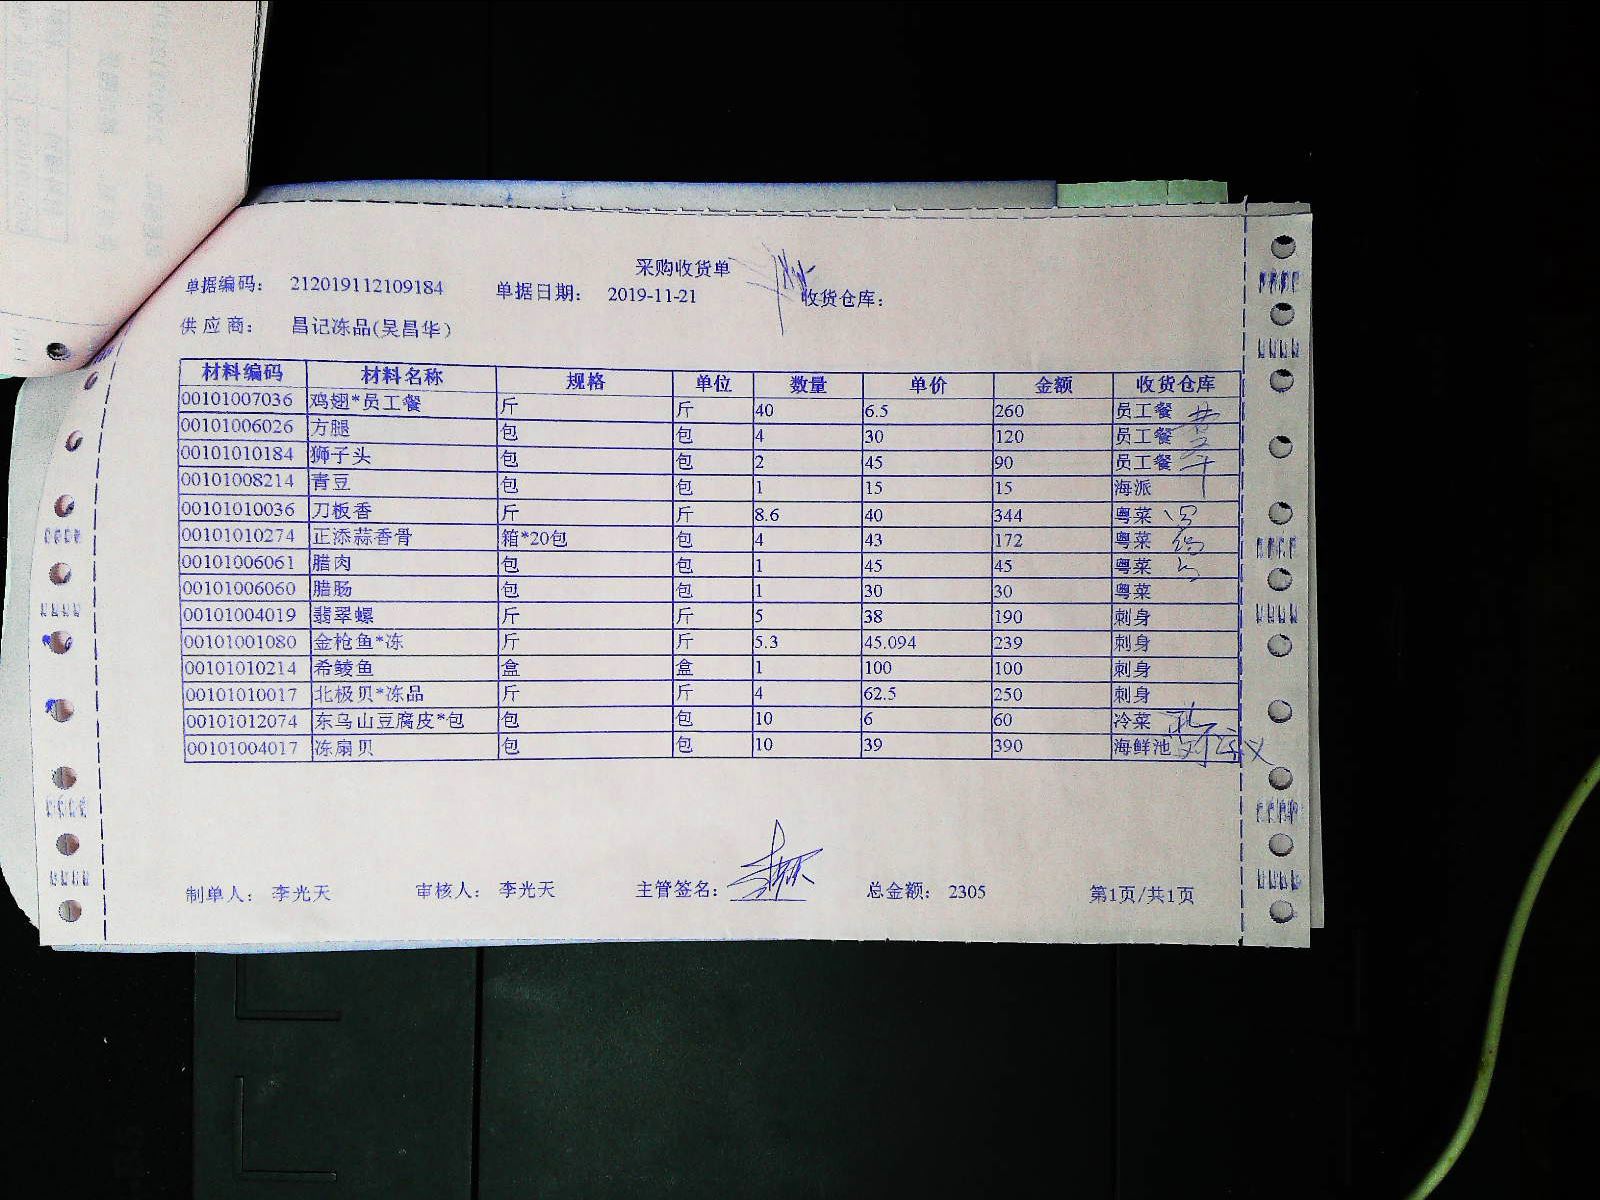 采购收货单
单据编码： 212019112109184 单据日期： 2019-11-21 收货仓库：
供应商： 昌记冻品(吴昌华)
材料编码 材料名称 规格 单位 数量 单价 金额 收货仓库
00101007036 鸡翅*员工餐 斤 斤 40 6.5 260 员工餐
00101006026 方腿 包 包 4 30 120 员工餐
00101010184 狮子头 包 包 2 45 90 员工餐
00101008214 青豆 包 包 1 15 15 海派
00101010036 刀板香 斤 斤 8.6 40 344 粤菜
00101010274 正添蒜香骨 箱*20包 包 4 43 172 粤菜
00101006061 腊肉 包 包 1 45 45 粤菜
00101006060 腊肠 包 包 1 30 30 粤菜
00101004019 翡翠螺 斤 斤 5 38 190 刺身
00101001080 金枪鱼*冻 斤 斤 5.3 45.094 239 刺身
00101010214 希鲮鱼 盒 盒 1 100 100 刺身
00101010017 北极贝*冻品 斤 斤 4 62.5 250 刺身
00101012074 东乌山豆腐皮*包 包 包 10 6 60 冷菜
00101004017 冻扇贝 包 包 10 39 390 海鲜池
制单人： 李光天 审核人： 李光天 主管签名： 总金额： 2305 第1页/共1页